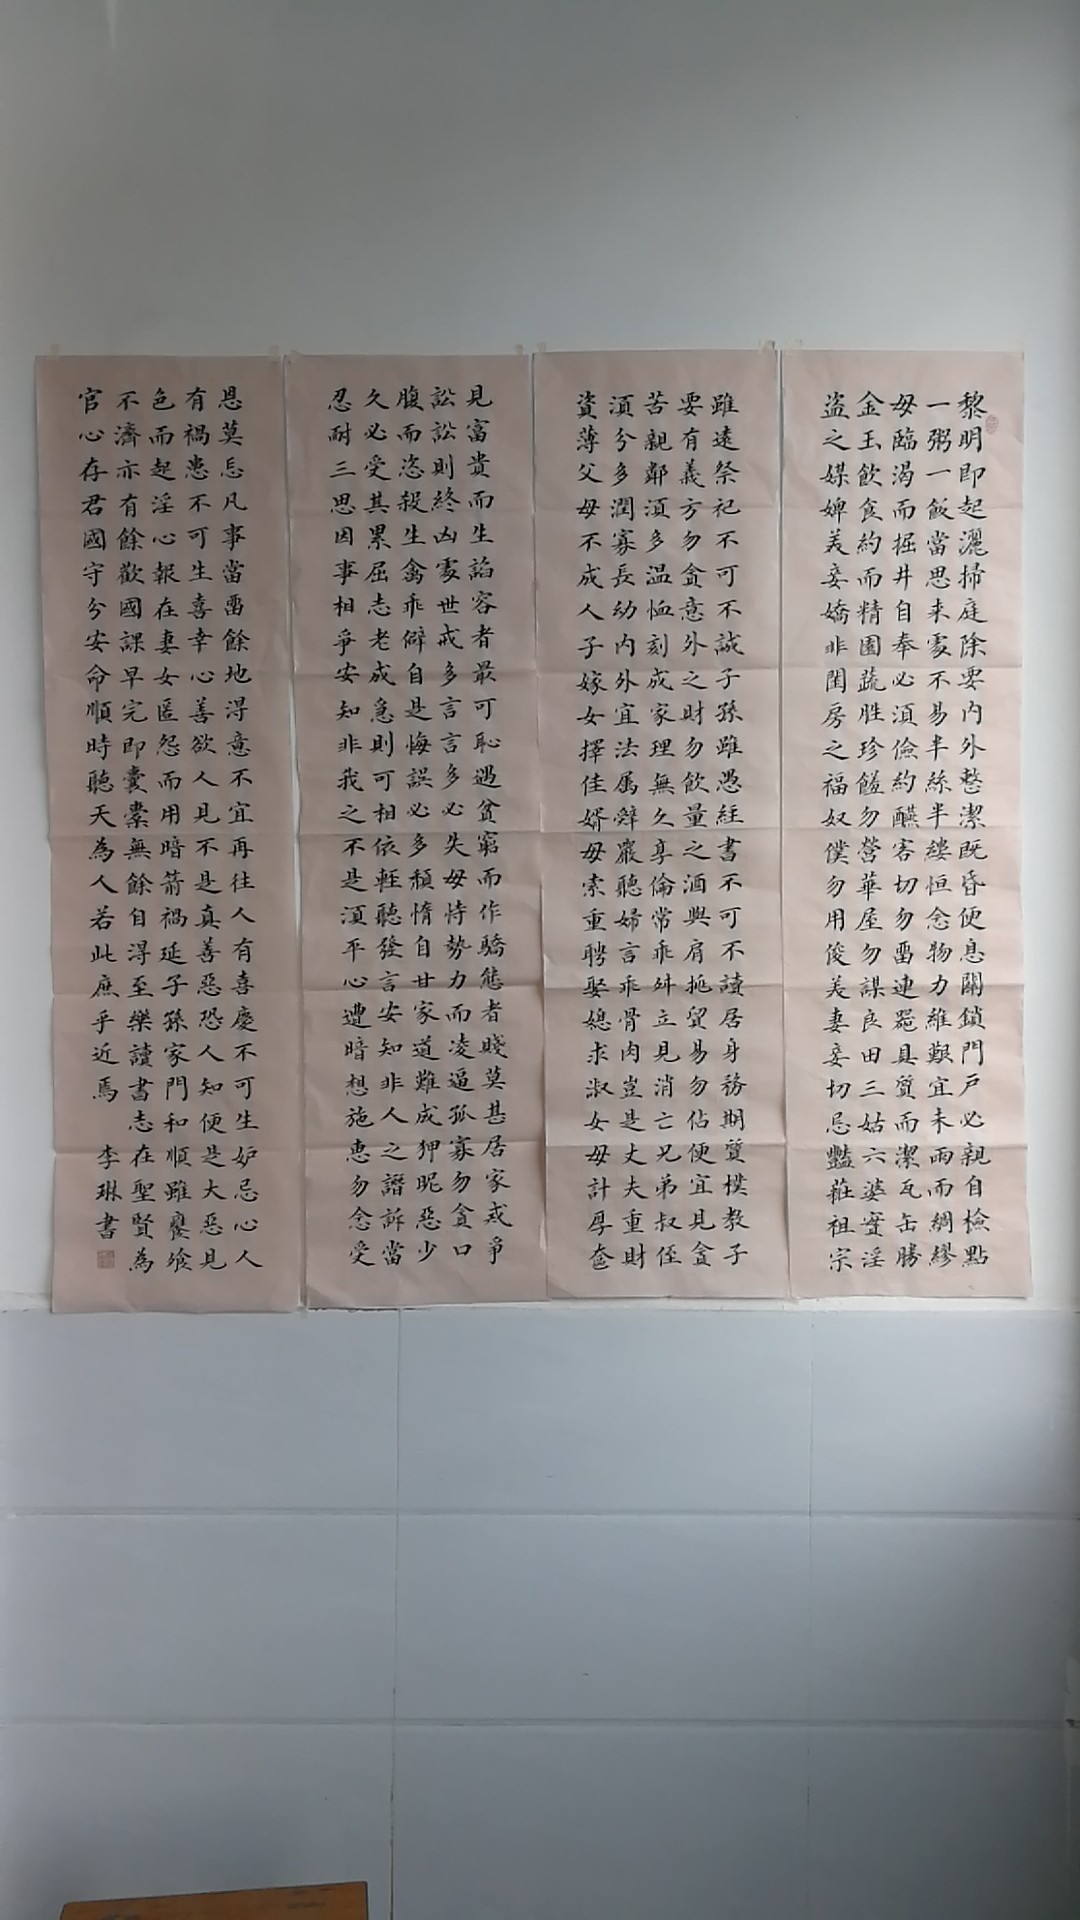 黎明即起灑掃庭除要內外整潔既昏便息關鎖門戶必親自檢點
一粥一飯當思来處不易半絲半縷恒念物力維艱宜未雨而綢繆
毋臨渴而掘井自奉必須儉約醼客切勿畱連器具質而潔瓦缶勝
金玉飲食約而精園蔬胜珍饈勿營華屋勿謀良田三姑六婆寔淫
盗之媒婢美妾嬌非閨房之福奴僕勿用俊美妻妾切忌豔莊祖宗
雖遠祭祀不可不誠子孫雖愚経書不可不讀居身務期質樸教子
要有義方勿貪意外之財勿飲量之酒與肩挑貿易勿佔便宜見貪
苦親鄰須多温恤刻成家理無久享倫常乖舛立見消亡兄弟叔侄
須分多潤寡長幼内外宜法属辤嚴聽婦言乖骨肉豈是丈夫重財
資薄父母不成人子嫁女擇佳婿毋索重聘娶媳求淑女毋計厚奩
見富貴而生諂容者最可恥遇貧窮而作驕態者賤莫甚居家戒爭
訟訟則終凶處世戒多言言多必失毋恃勢力而凌逼孤寡勿貪口
腹而恣殺生禽乖僻自是悔誤必多頹惰自甘家道難成狎昵惡少
久必受其累屈志老成急則可相依輕聽發言安知非人之譖訴當
忍耐三思因事相爭安知非我之不是須平心遭暗想施惠勿念受
恩莫忘凡事當畱餘地得意不宜再往人有喜慶不可生妒忌心人
有禍患不可生喜幸心善欲人見不是真善惡恐人知便是大惡見
色而起淫心報在妻女匿怨而用暗箭禍延子孫家門和順雖饔飧
不濟亦有餘歡國課早完即囊橐無餘自得至樂讀書志在聖賢為
官心存君國守分安命順時聽天為人若此庶乎近焉 李琳書